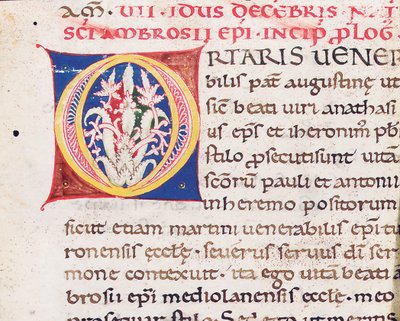 VII · IDUS DECEBRIS
SCI AMBROSII EPI · INCIP PLOG
ORTARIS UENER
bilis pat̄ augustine ut
sic̄ beati uiri anathasi
us ep̄s et iheronim̄ pb̄
stilo ꝓsecuti sunt uitā
sc̄oꝝ pauli et antonii
in heremo positorum
ficut etiam martini uenerabilis ep̄i tu
ronensis eccl̄ę · seuerus seruus dī ser
mone contexuit · ita ego uitā beati a
brosii ep̄i mediolanensis eccl̄ę · meo